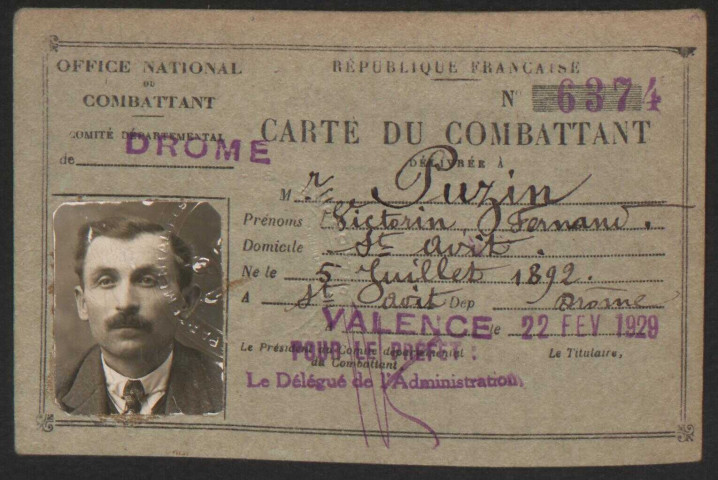 OFFICE NATIONAL
DU
COMBATTANT
COMITÉ DÉPARTEMENTAL
de DROME
RÉPUBLIQUE FRANÇAISE
N° 6374
CARTE DU COMBATTANT
DÉLIVRÉE À
M r Puzin
Prénoms Victorin, Fernand.
Domicile St Avit.
Né le 5 Juillet 1892.
A St Avit Dep Drôme
VALENCE le 22 FEV 1929
POUR LE PREFET:
Le Président du Comité départemental
du Combattant,
Le Titulaire,
Le Délégué de l'Administration,